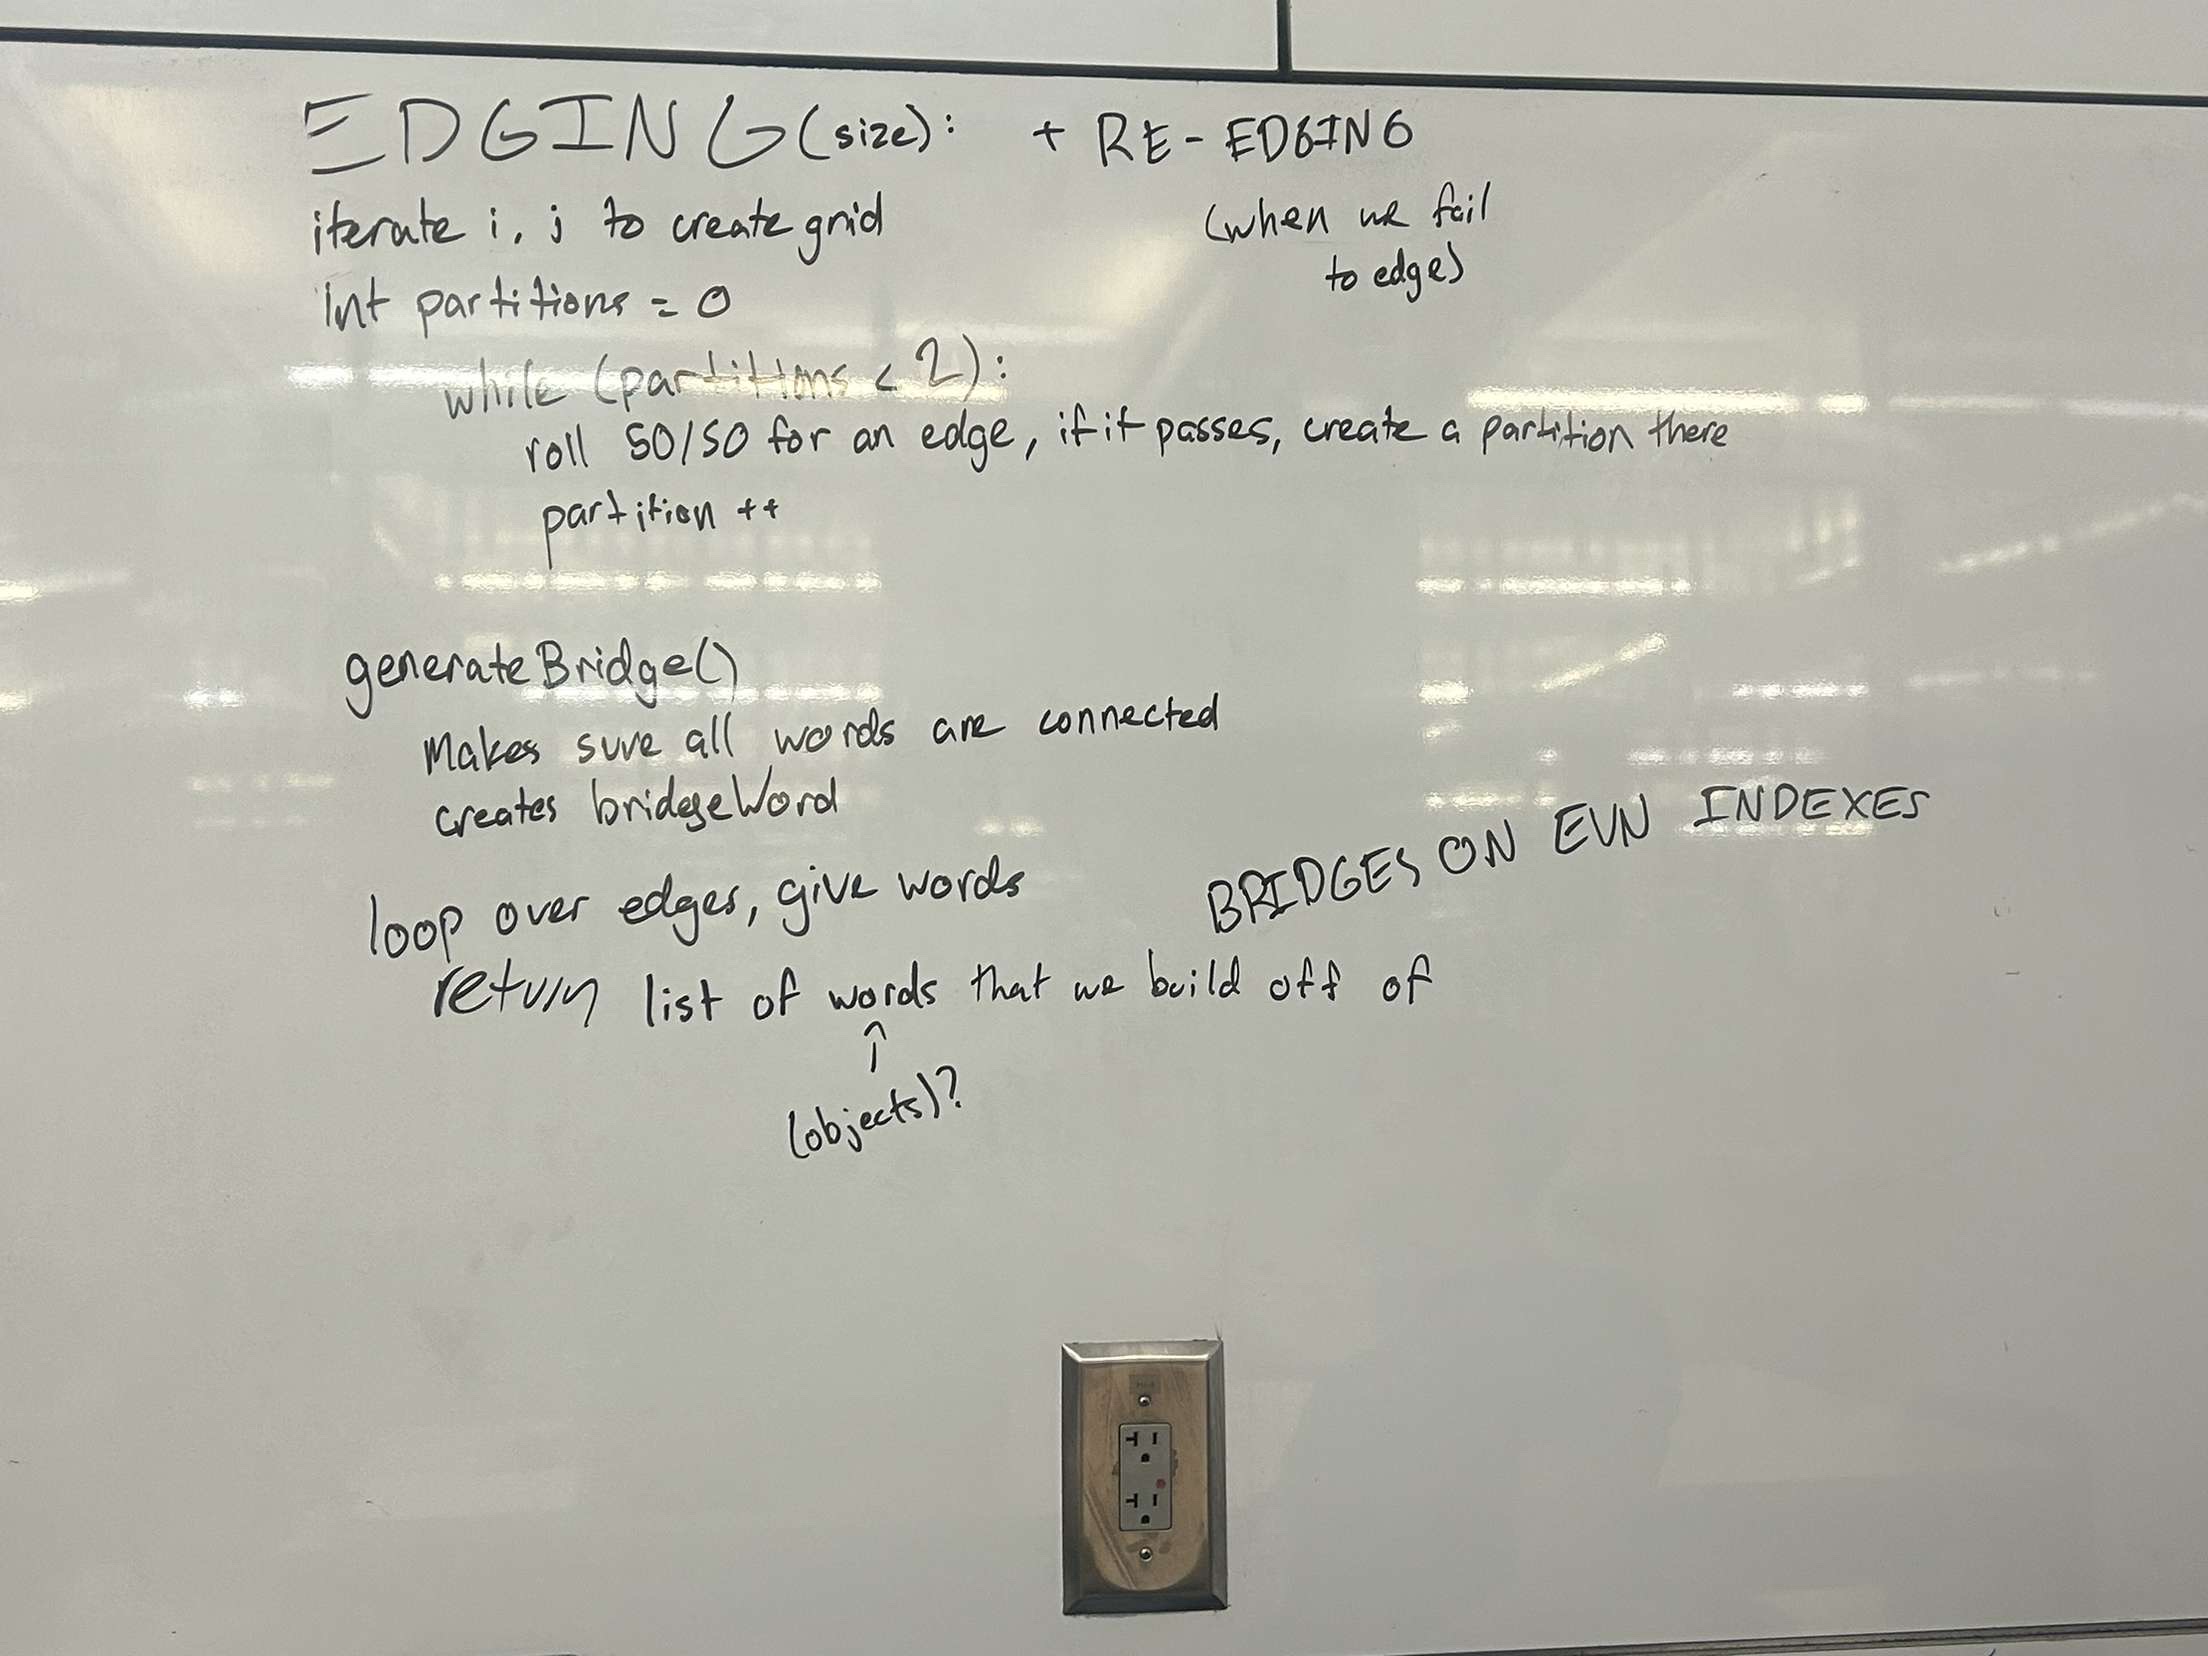 EDGING(size): + RE-EDGING
(when we fail
to edge)
iterate i, j to create grid
int partitions = 0
while (partitions < 2):
roll 50/50 for an edge, if it passes, create a partition there
partition ++
generateBridge()
Makes sure all words are connected
creates bridgeWord
BRIDGES ON EVN INDEXES
loop over edges, give words
return list of words that we build off of
↑
(objects)?